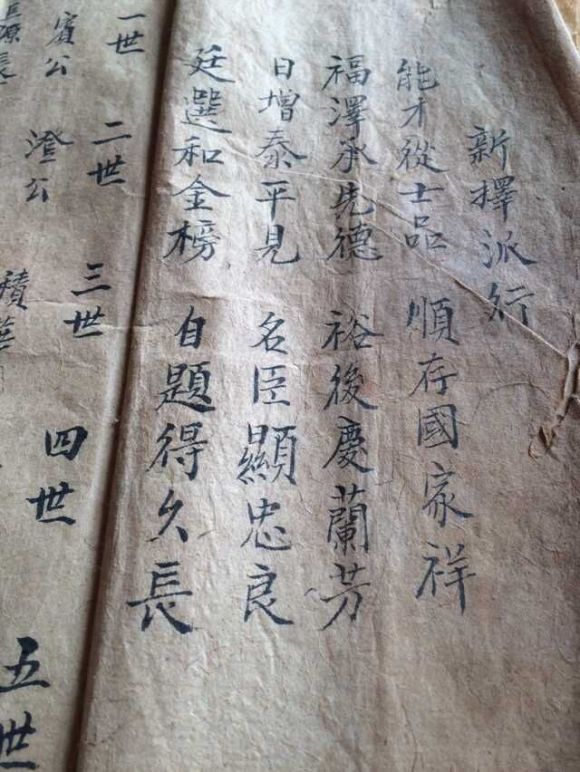 新擇派行
能才從士品 順存國家祥
福澤承先德 裕後慶蘭芳
日增泰平見 名臣顯忠良
廷選和金榜 自題得久長
一世 二世 三世 四世 五世
賓公 澄公